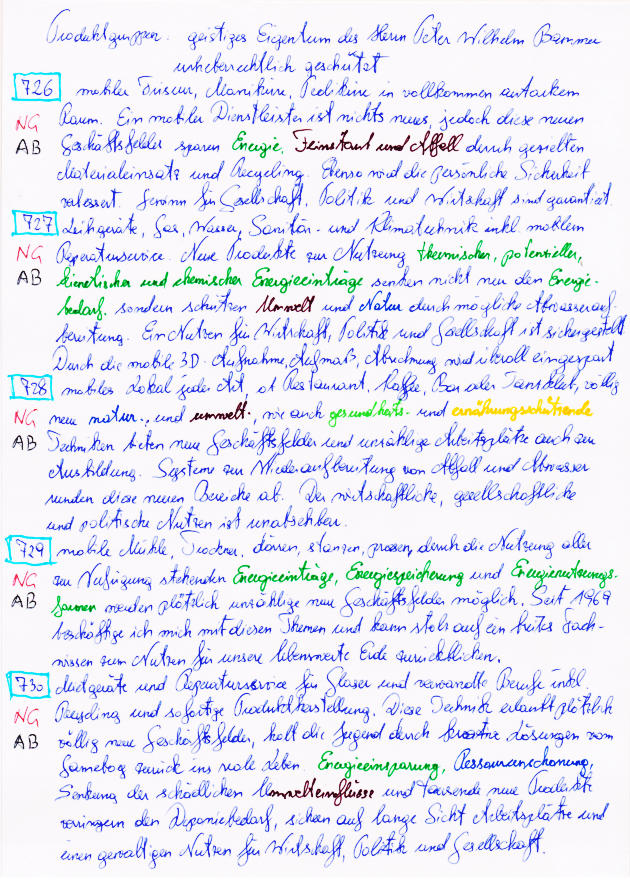 Produktgruppen: geistiges Eigentum des Herrn Peter Wilhelm Bammer
urheberrechtlich geschützt
726 mobiler Friseur, Maniküre, Pediküre in vollkommen autarkem
NG Raum. Ein mobiler Dienstleister ist nichts neues, jedoch diese neuen
AB Geschäftsfelder sparen Energie, Feinstaub und Abfall durch gezielten
Materialeinsatz und Recycling. Ebenso wird die persönliche Sicherheit
verbessert. Gewinn für Gesellschaft, Politik und Wirtschaft sind garantiert
727 Leihgeräte, Gas, Wasser, Sanitär- und Klimatechnik inkl. mobilem
NG Reparaturservice. Neue Produkte zur Nutzung thermischer, potenzieller,
AB kinetischer und chemischer Energieeinträge senken nicht nur den Energie-
bedarf, sondern schützen Umwelt und Natur durch mögliche Abwasserauf-
bereitung. Ein Nutzen für Wirtschaft, Politik und Gesellschaft ist sichergestellt
Durch die mobile 3D-Aufnahme, Aufmaß, Abrechnung wird überall eingespart
728 mobiles Lokal jeder Art, ob Restaurant, Kaffee, Bar oder Tanzlokal, völlig
NG neue natur-, und umwelt-, wie auch gesundheits- und ernährungsschützende
AB Techniken bieten neue Geschäftsfelder und unzählige Arbeitsplätze auch zur
Ausbildung. Systeme zur Wiederaufbereitung von Abfall und Abwasser
runden diese neuen Bereiche ab. Der wirtschaftliche, gesellschaftliche
und politische Nutzen ist unabsehbar.
729 mobile Mühle, Trockner, dörren, stanzen, pressen, durch die Nutzung aller
NG zur Verfügung stehenden Energieeinträge, Energiespeicherung und Energienutzungs-
AB formen werden plötzlich unzählige neue Geschäftsfelder möglich. Seit 1969
beschäftige ich mich mit diesen Themen und kann stolz auf ein breites Fach-
wissen zum Nutzen für unsere lebenswerte Erde zurückblicken.
730 Mietgeräte und Reparaturservice für Glaser und verwandte Berufe inkl.
NG Recycling und sofortige Produktherstellung. Diese Technik erlaubt plötzlich
AB völlig neue Geschäftsfelder, holt die Jugend durch kreative Lösungen vom
Gameboy zurück ins reale Leben. Energieeinsparung, Ressourcenschonung,
Senkung der schädlichen Umwelteinflüsse und tausende neue Produkte
verringern den Deponiebedarf, sichern auf lange Sicht Arbeitsplätze und
einen gewaltigen Nutzen für Wirtschaft, Politik und Gesellschaft.